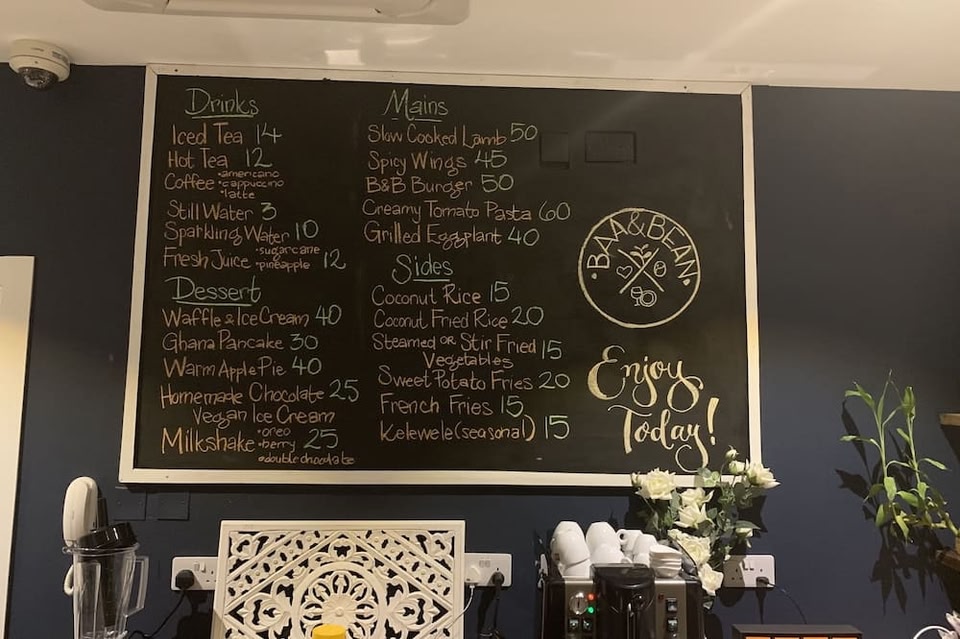 Drinks
Iced Tea 14
Hot Tea 12
Coffee •americano
•cappuccino
•latte
Still Water 3
Sparkling Water 10
Fresh Juice •sugarcane
•pineapple 12
Dessert
Waffle & Ice Cream 40
Ghana Pancake 30
Warm Apple Pie 40
Homemade Chocolate 25
Vegan Ice Cream
Milkshake •oreo
•berry 25
•double chocolate
Mains
Slow Cooked Lamb 50
Spicy Wings 45
B&B Burger 50
Creamy Tomato Pasta 60
Grilled Eggplant 40
Sides
Coconut Rice 15
Coconut Fried Rice 20
Steamed OR Stir Fried 15
Vegetables
Sweet Potato Fries 20
French Fries 15
Kelewele (seasonal) 15
BAA&BEAN
Enjoy
Today!